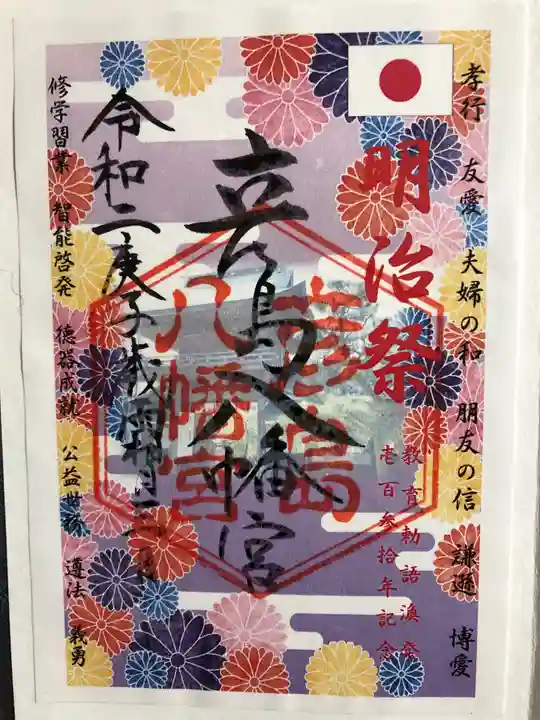 孝行 友愛 夫婦の和 朋友の信 謙遜 博愛
明治祭
教育勅語渙発
壱百参拾年記念
彦島八幡宮
彦島
八幡宮
令和二庚子歳霜月三日
修学習業 智能啓発 徳器成就 公益世務 遵法 義勇